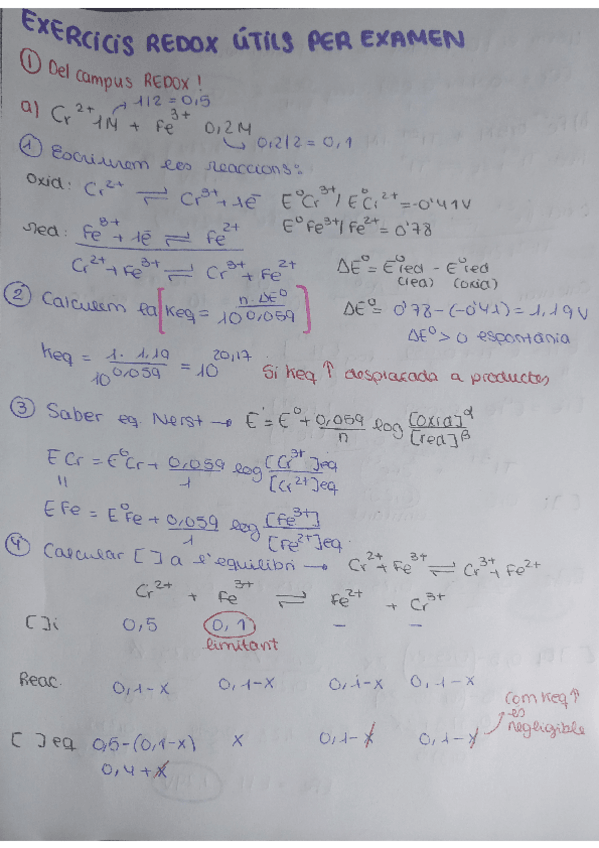 EXERCICIS REDOX ÚTILS PER EXAMEN
① Del campus REDOX!
→ 1/2 = 0,5
a) Cr²⁺ 1M + Fe³⁺ 0,2M
→ 0,2/2 = 0,1
① Escriurem les reaccions:
Oxid: Cr²⁺ ⇌ Cr³⁺ + 1e⁻ E°Cr³⁺/E°Cr²⁺ = -0'41V
red: Fe³⁺ + 1e⁻ ⇌ Fe²⁺ E°Fe³⁺/Fe²⁺ = 0'78
Cr²⁺ + Fe³⁺ ⇌ Cr³⁺ + Fe²⁺ ΔE° = E°red - E°red
(red) (oxid)
② Calculem la [Keq = 10^(n·ΔE°/0,059)] ΔE° = 0'78-(-0'41) = 1,19V
ΔE° > 0 espontània
Keq = 10^(1·1,19/0,059) = 10^20,17 Si Keq ↑ desplaçada a productes
③ Saber eq. Nerst → E = E° + 0,059/n log [oxid]^α/[red]^β
ECr = E°Cr + 0,059/1 log [Cr³⁺]eq/[Cr²⁺]eq
||
EFe = E°Fe + 0,059/1 log [Fe³⁺]/[Fe²⁺]eq
④ Calcular [ ] a l'equilibri → Cr²⁺ + Fe³⁺ ⇌ Cr³⁺ + Fe²⁺
Cr²⁺ + Fe³⁺ ⇌ Fe²⁺ + Cr³⁺
[ ]i 0,5 0,1 - -
limitant
Reac. 0,1-x 0,1-x 0,1-x 0,1-x
Com Keq ↑
es
negligible
[ ]eq 0,5-(0,1-x) x 0,1-x 0,1-x
0,4+x